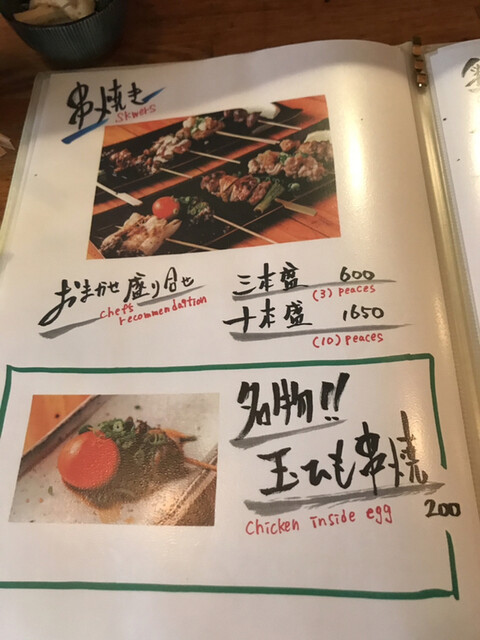 串焼き
skwers
おまかせ盛り合せ
chefs
recommendaition
三本盛 600
(3) peaces
十本盛 1650
(10) peaces
名物!!
玉ひも串焼
Chicken inside egg 200